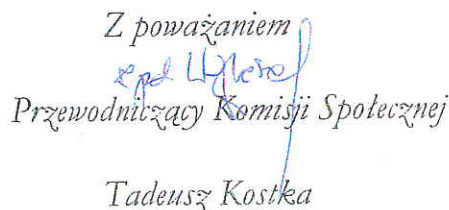 Z poważaniem
Przewodniczący Komisji Społecznej
Tadeusz Kostka